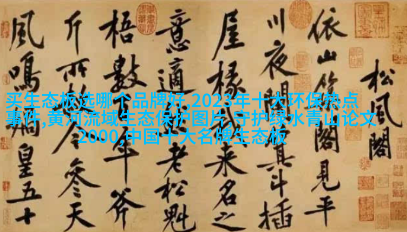 买生态板选哪个品牌好,2023年十大环保热点
事件,黄河流域生态保护图片,守护绿水青山论文
2000,中国十大名牌生态板
松風閣
依山築閣見平
川夜闌箕斗插
屋椽我來名之
意適然老松魁
梧數百年斧
斤所赦今參天
風鳴媧皇五十